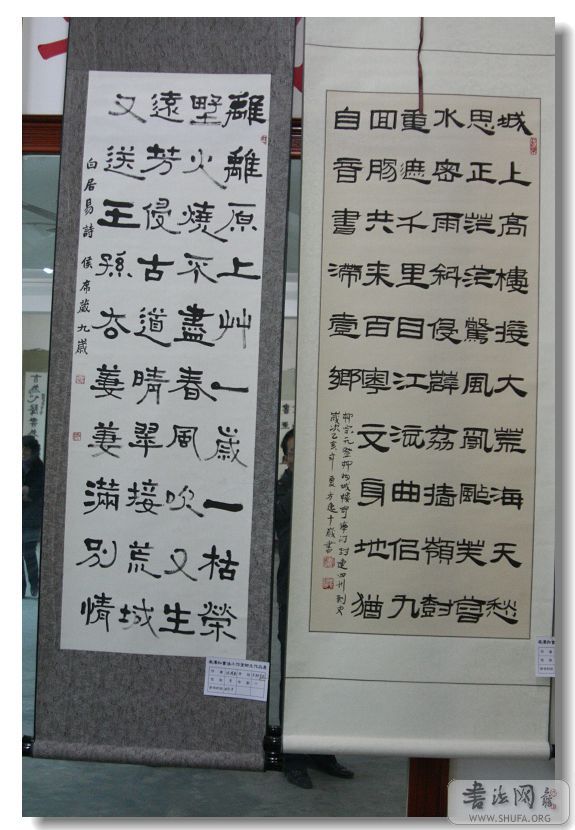 城上高樓接大荒海天愁
思正茫茫驚風亂颭芙蓉
水密雨斜侵薜荔墻嶺樹
重遮千里目江流曲佀九
回腸共来百粤文身地猶
自音書滯壹鄉
柳宗元登柳州城樓寄漳汀封連四州刺史
歲次乙亥年夏 十歲書
離離原上艸一歲一枯榮
野火燒不盡春風吹又生
遠芳侵古道晴翠接荒城
又送王孫去萋萋滿別情
白居易詩 侯席葳九歲
书法网
WWW.SHUFA.ORG